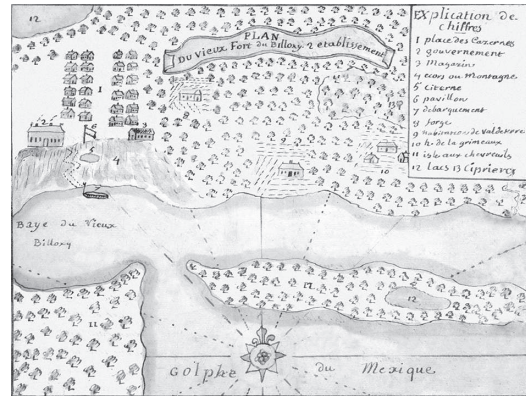 PLAN
Du Vieux Fort du Billoxy. 2 etablissement
EXplication de
chiffres
1 place des Cazernes
2 gouvernement
3 Magazin
4 ecors ou Montagne
5 Citerne
6 pavillon
7 debarquement
8 forge
9 de Valdeterre
10 h. de la grimeaux
11 isle aux chevreuils
12 Lacs 13 Ciprieres
12
1
2
3
6
4
7
8
9
10
13
Baye du Vieux
Billoxy
11
12
12
Golphe du Mexique